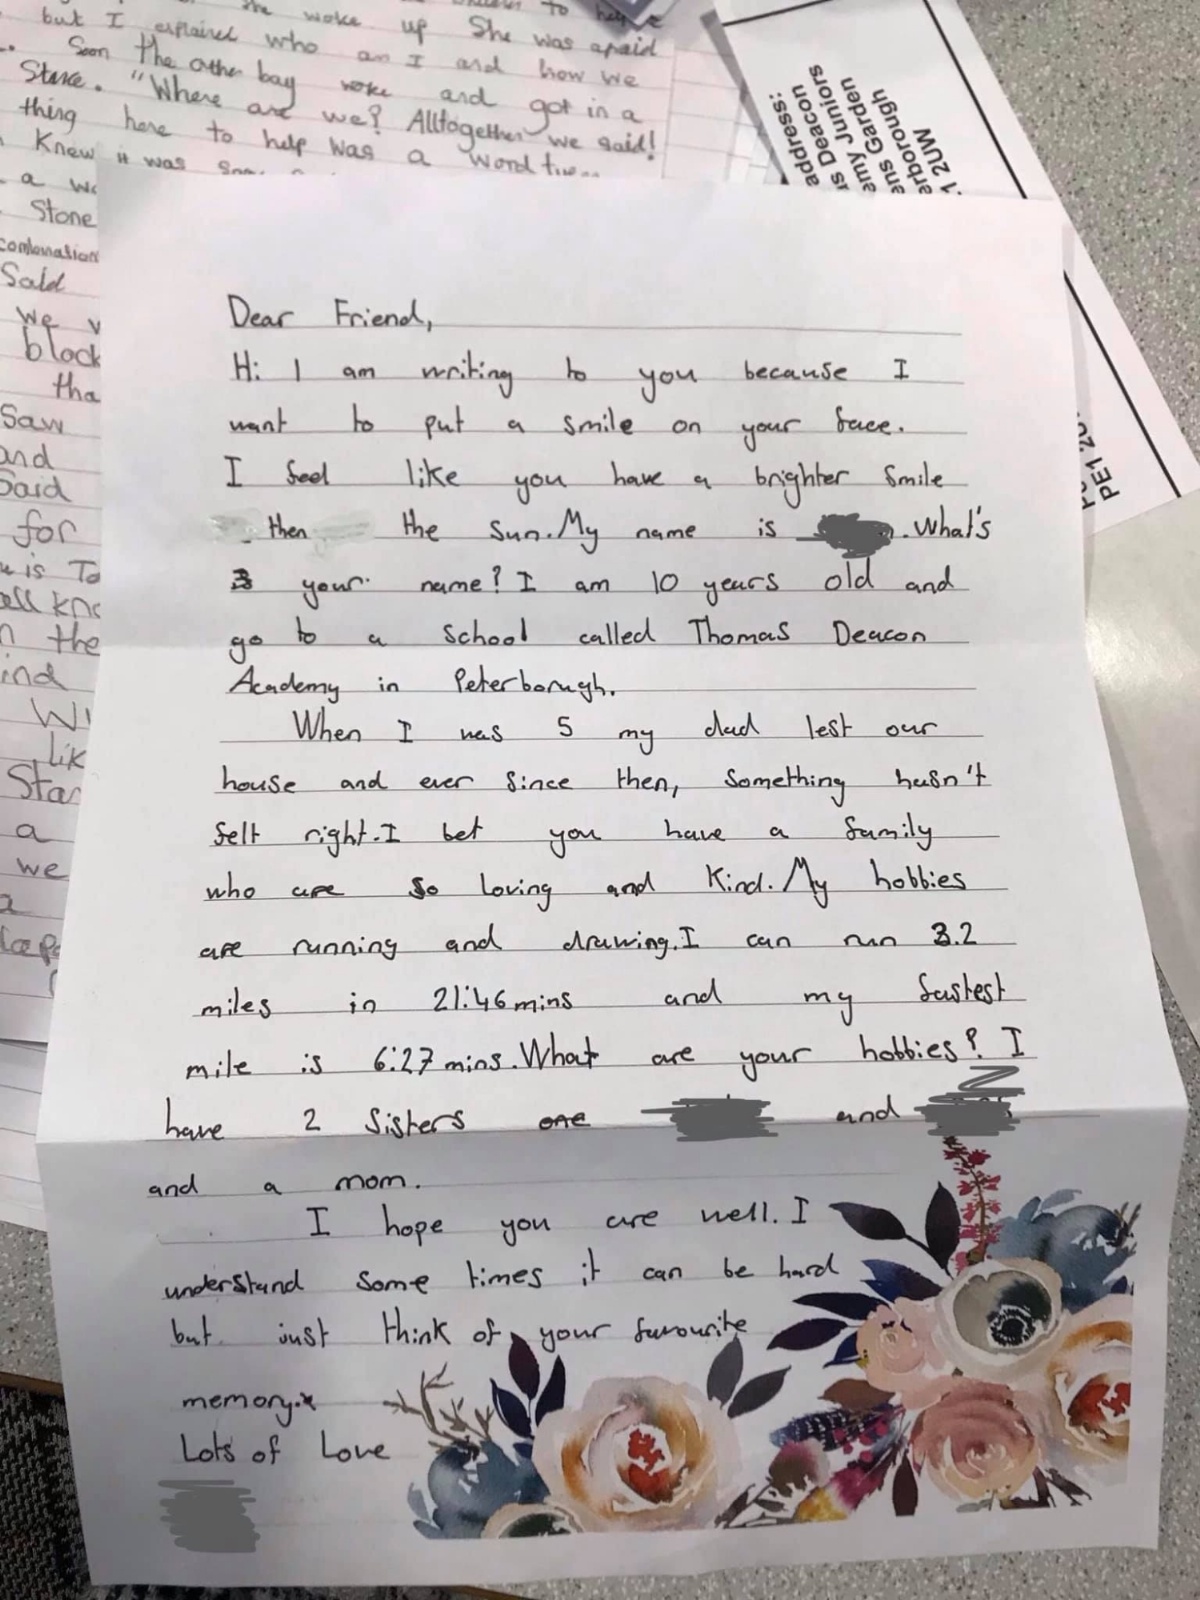 she woke up She was apaid
but I explained who am I and how we
Soon the other bay woke and got in a
Stare. "Where are we? Alltogether we said!
thing here to help was a word
Knew it was
a
Stone
combonation
Said
we
block
tha
Saw
and
Said
for
is To
ell kno
the
ind
Wi
lik
Star
a
we
a
address:
s Deacon
amy Juniors
ans Garden
erborough
1 2UW
PE1 2U
Dear Friend,
Hi I am writing to you because I
want to put a smile on your face.
I feel like you have a brighter smile
then the sun. My name is . What's
your name? I am 10 years old and
go to a school called Thomas Deacon
Academy in Peterborugh.
When I was 5 my dad left our
house and ever since then, something hasn't
felt right. I bet you have a family
who are so loving and kind. My hobbies
are running and drawing. I can run 3.2
miles in 21:46 mins and my fastest
mile is 6:27 mins. What are your hobbies? I
have 2 sisters one and
and a mom.
I hope you are well. I
understand some times it can be hard
but just think of your favourite
memory.x
Lots of Love